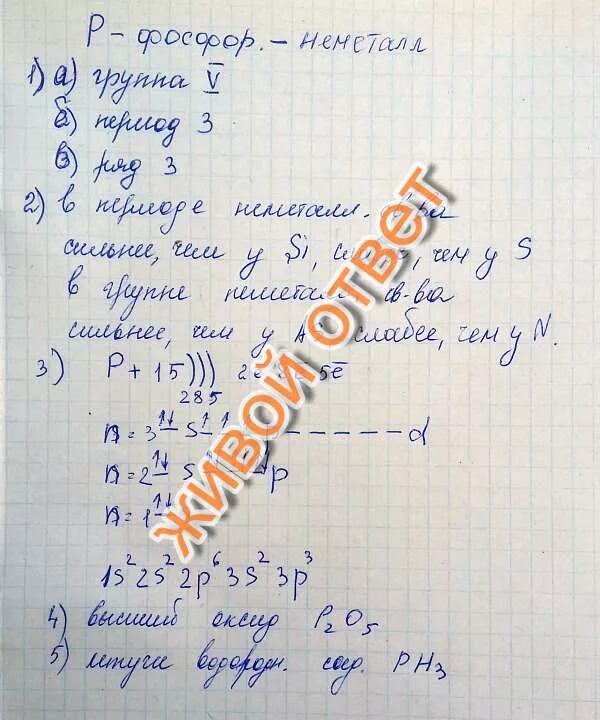 P – фосфор. – неметалл
1) а) группа V
б) период 3
в) ряд 3
2) в периоде неметалл.
сильнее, чем у Si, чем у S
в группе неметалл. св-ва
сильнее, чем у As слабее, чем у N.
3) P + 15 ))) 2е 5е
2 8 5
n = 3 ↑↓ s ↑ ↑ – – – – – d
n = 2 ↑↓ s p
n = 1 ↑↓
1s² 2s² 2p⁶ 3s² 3p³
4) высший оксид P₂O₅
5) летуче водородн. соед. PH₃
ЖИВОЙ ОТВЕТ